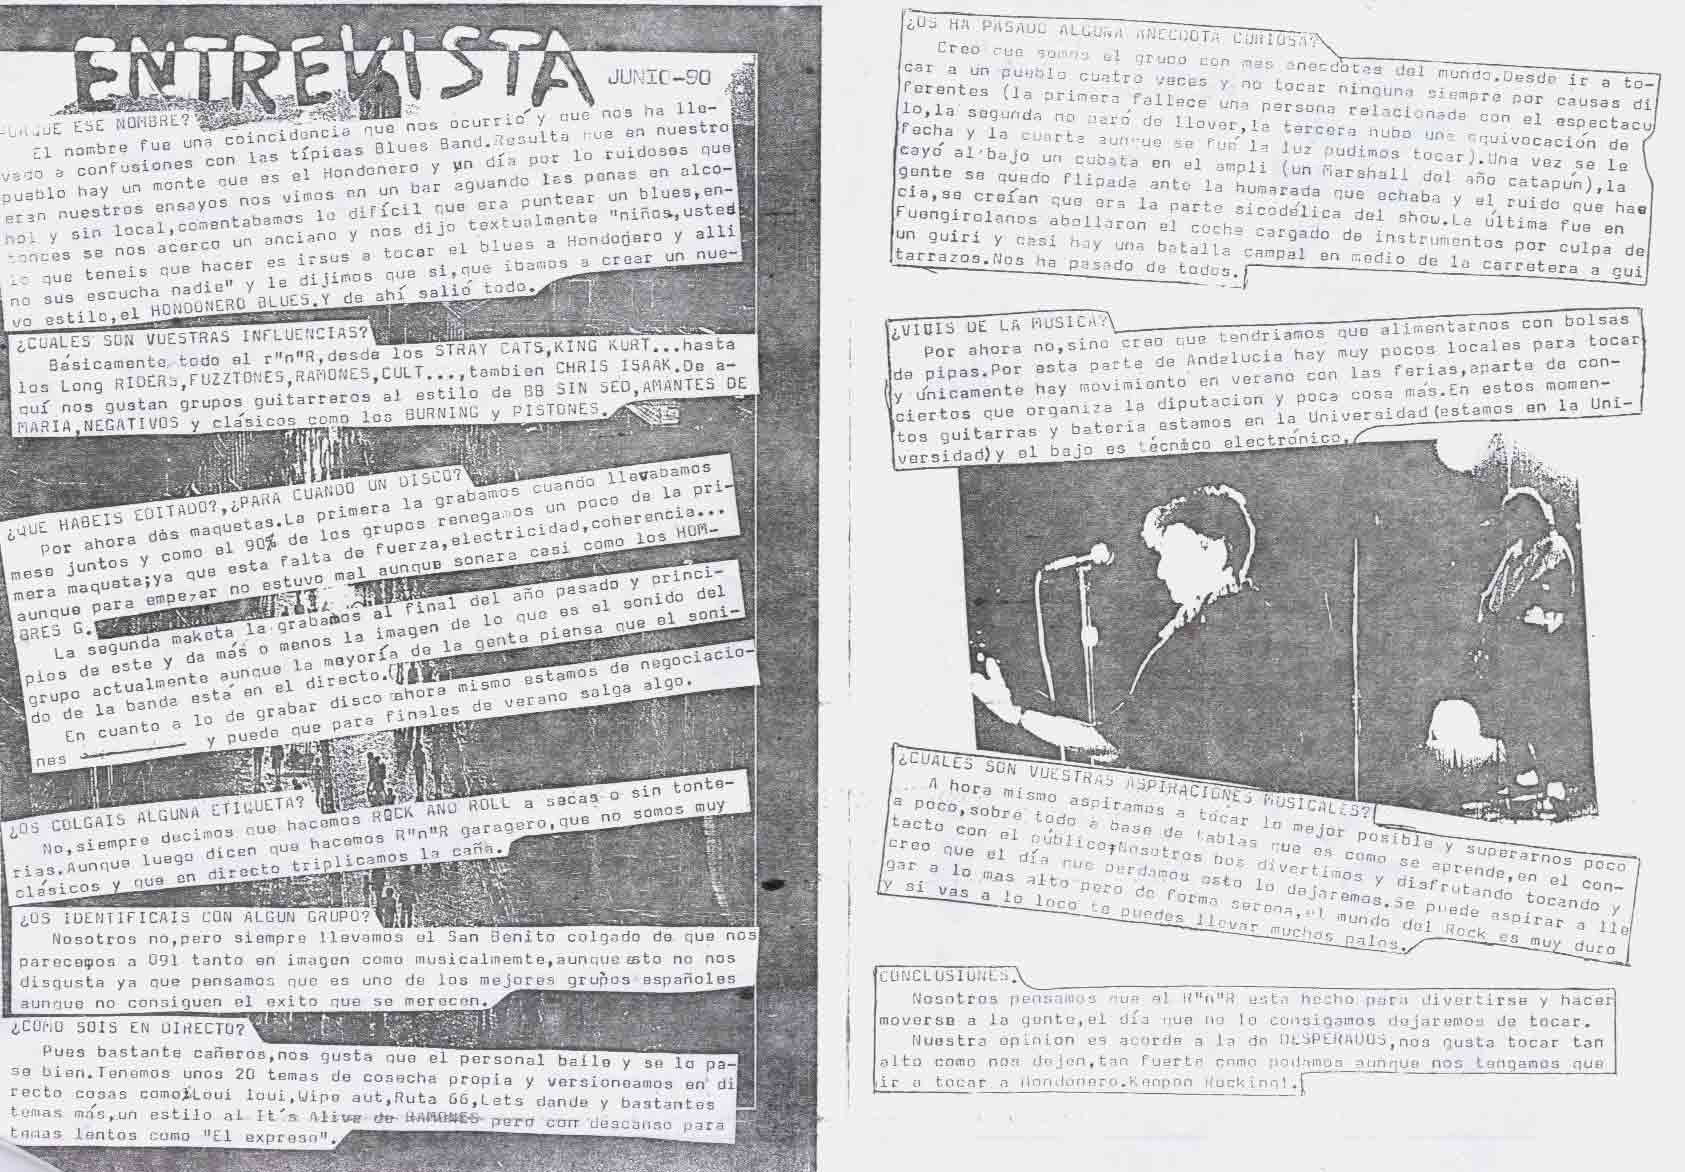 ENTREVISTA
JUNIO-90
¿PORQUE ESE NOMBRE?
El nombre fue una coincidencia que nos ocurrió y que nos ha lle-
vado a confusiones con las típicas Blues Band.Resulta que en nuestro
pueblo hay un monte que es el Hondonero y un día por lo ruidosos que
eran nuestros ensayos nos vimos en un bar aguando las penas en alco-
hol y sin local,comentabamos lo difícil que era puntear un blues,en-
tonces se nos acerco un anciano y nos dijo textualmente "niños,usted
lo que teneis que hacer es irsus a tocar el blues a Hondonero y alli
no sus escucha nadie" y le dijimos que si,que ibamos a crear un nue-
vo estilo,el HONDONERO BLUES.Y de ahí salió todo.
¿CUALES SON VUESTRAS INFLUENCIAS?
Básicamente todo el r"n"R,desde los STRAY CATS,KING KURT...hasta
los Long RIDERS,FUZZTONES,RAMONES,CULT...,tambien CHRIS ISAAK.De a-
quí nos gustan grupos guitarreros al estilo de BB SIN SED,AMANTES DE
MARIA,NEGATIVOS y clásicos como los BURNING y PISTONES.
¿QUE HABEIS EDITADO?,¿PARA CUANDO UN DISCO?
Por ahora dos maquetas.La primera la grabamos cuando llevabamos
mese juntos y como el 90% de los grupos renegamos un poco de la pri-
mera maqueta;ya que esta falta de fuerza,electricidad,coherencia...
aunque para empezar no estuvo mal aunque sonara casi como los HOM-
BRES G.
La segunda maketa la grabamos al final del año pasado y princi-
pios de este y da más o menos la imagen de lo que es el sonido del
grupo actualmente aunque la mayoría de la gente piensa que el soni-
do de la banda está en el directo.
En cuanto a lo de grabar disco ahora mismo estamos de negociacio-
nes y puede que para finales de verano salga algo.
¿OS COLGAIS ALGUNA ETIQUETA?
No,siempre decimos que hacemos ROCK AND ROLL a secas o sin tonte-
rias.Aunque luego dicen que hacemos R"n"R garagero,que no somos muy
clásicos y que en directo triplicamos la caña.
¿OS IDENTIFICAIS CON ALGUN GRUPO?
Nosotros no,pero siempre llevamos el San Benito colgado de que nos
parecemos a 091 tanto en imagen como musicalmemte,aunque esto no nos
disgusta ya que pensamos que es uno de los mejores grupos españoles
aunque no consiguen el exito que se merecen.
¿COMO SOIS EN DIRECTO?
Pues bastante cañeros,nos gusta que el personal baile y se lo pa-
se bien.Tenemos unos 20 temas de cosecha propia y versioneamos en di
recto cosas como Loui loui,Wipe aut,Ruta 66,Lets dande y bastantes
temas más,un estilo al It's Alive de RAMONES pero con descanso para
temas lentos como "El expreso".
¿OS HA PASADO ALGUNA ANECDOTA CURIOSA?
Creo que somos el grupo con mas anecdotas del mundo.Desde ir a to-
car a un pueblo cuatro veces y no tocar ninguna siempre por causas di
ferentes (la primera fallece una persona relacionada con el espectacu
lo,la segunda no paró de llover,la tercera hubo una equivocación de
fecha y la cuarta aunque se fué la luz pudimos tocar).Una vez se le
cayó al bajo un cubata en el ampli (un Marshall del año catapún),la
gente se quedo flipada ante la humarada que echaba y el ruido que hac
cia,se creían que era la parte sicodélica del show.La última fue en
Fuengirolanos abollaron el coche cargado de instrumentos por culpa de
un guiri y casi hay una batalla campal en medio de la carretera a gui
tarrazos.Nos ha pasado de todos.
¿VIVIS DE LA MUSICA?
Por ahora no,sino creo que tendriamos que alimentarnos con bolsas
de pipas.Por esta parte de Andalucia hay muy pocos locales para tocar
y únicamente hay movimiento en verano con las ferias,aparte de con-
ciertos que organiza la diputacion y poca cosa más.En estos momen-
tos guitarras y bateria estamos en la Universidad(estamos en la Uni-
versidad)y el bajo es técnico electrónico.
¿CUALES SON VUESTRAS ASPIRACIONES MUSICALES?
A hora mismo aspiramos a tocar lo mejor posible y superarnos poco
a poco,sobre todo a base de tablas que es como se aprende,en el con-
tacto con el público;Nosotros nos divertimos y disfrutando tocando y
creo que el día que perdamos esto lo dejaremos.Se puede aspirar a lle
gar a lo mas alto pero de forma serena,el mundo del Rock es muy duro
y si vas a lo loco te puedes llevar muchos palos.
CONCLUSIONES.
Nosotros pensamos que el R"n"R esta hecho para divertirse y hacer
moverse a la gente,el día que no lo consigamos dejaremos de tocar.
Nuestra opinion es acorde a la de DESPERADOS,nos gusta tocar tan
alto como nos dejen,tan fuerte como podamos aunque nos tengamos que
ir a tocar a Hondonero.Keopon Rocking!.